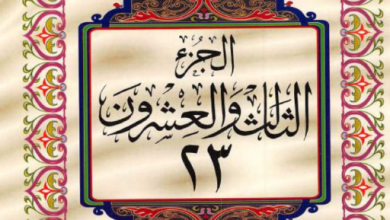 الجزء
الثالث والعشرون
٢٣